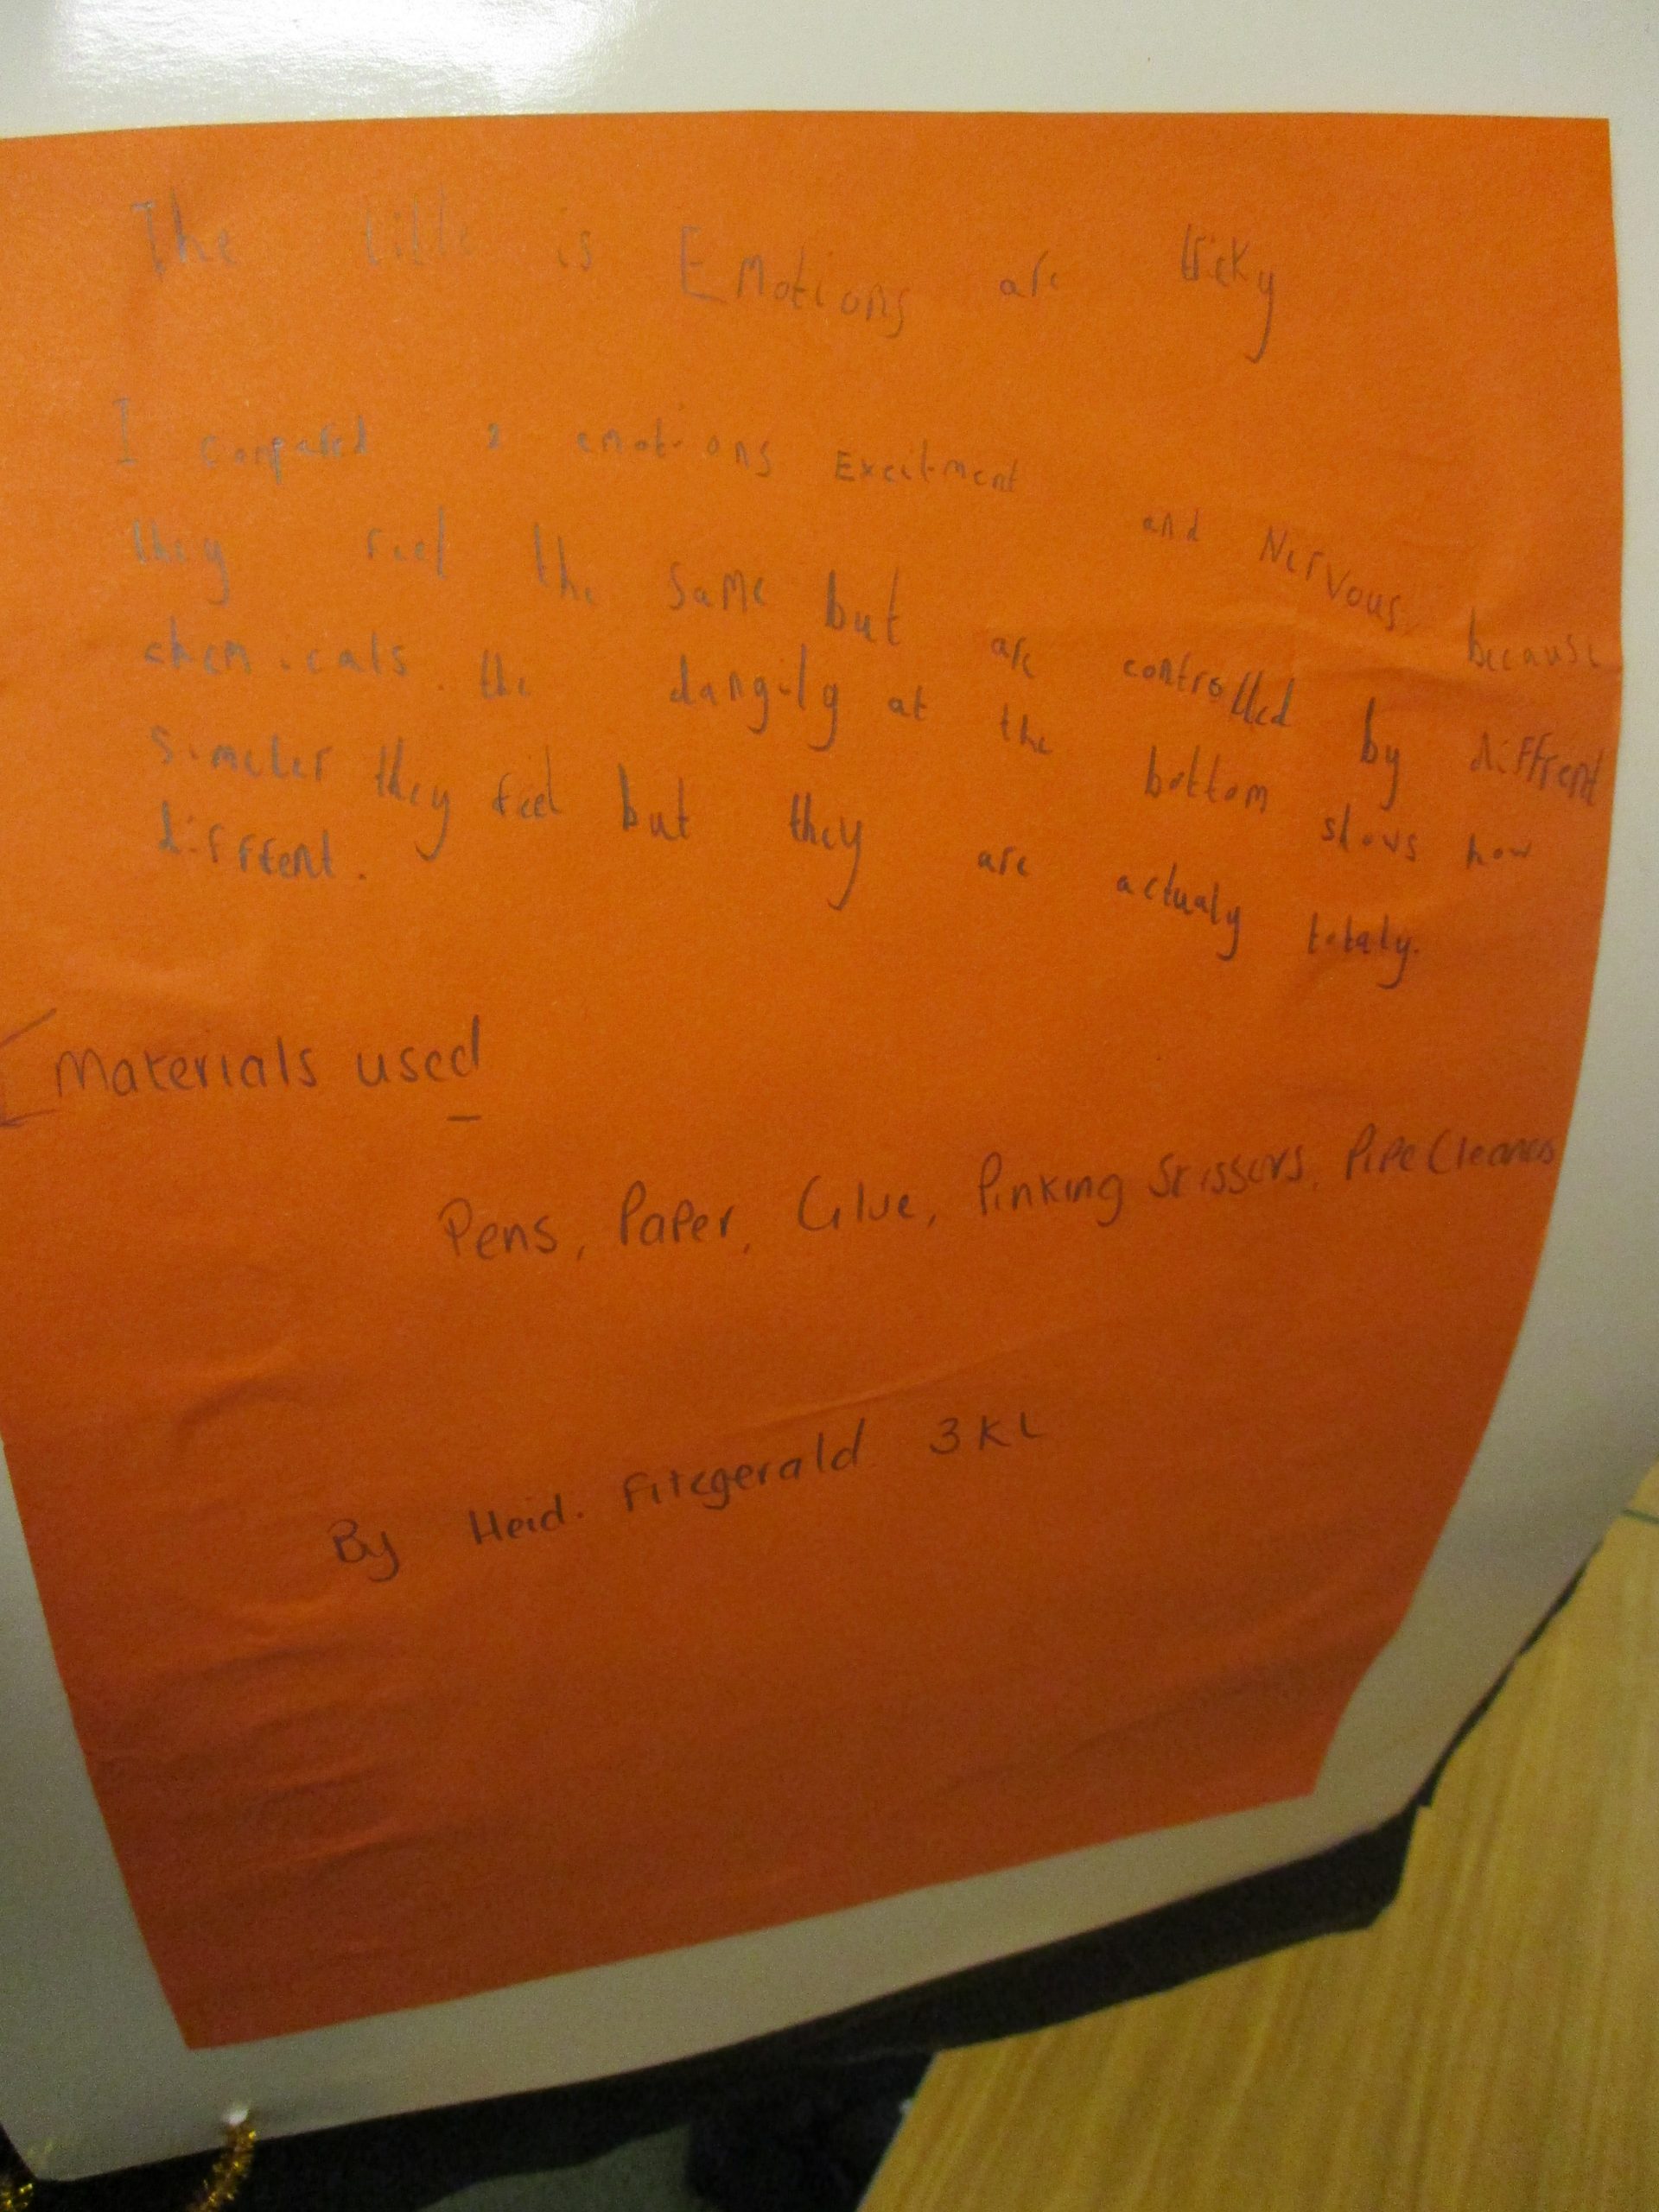 The title is Emotions are tricky
I compared 2 emotions Excitment and Nervous because
they feel the same but are controlled by diffrent
chemicals. the dangily at the bottom shows how
simeler they feel but they are actualy totaly.
diffrent.
Materials used
Pens, Paper, Glue, Pinking Scissors, Pipe Cleaners
By Heidi Fitzgerald 3KL